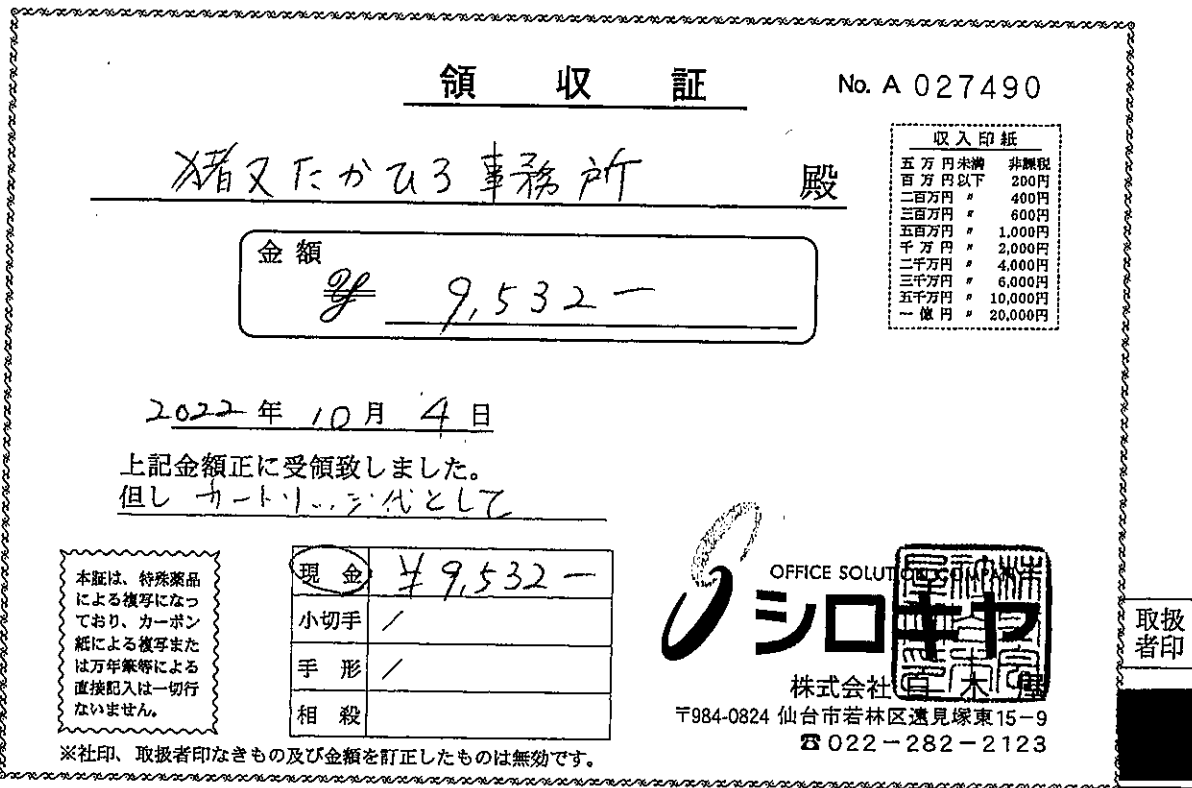 領収証
No. A 027490
猪又たかひろ事務所 殿
収入印紙
五万円未満 非課税
百万円以下 200円
二百万円 〃 400円
三百万円 〃 600円
五百万円 〃 1,000円
千万円 〃 2,000円
二千万円 〃 4,000円
三千万円 〃 6,000円
五千万円 〃 10,000円
一億円 〃 20,000円
金額
¥ 9,532-
2022年10月4日
上記金額正に受領致しました。
但し カートリッジ代として
本証は、特殊薬品
による複写になっ
ており、カーボン
紙による複写また
は万年筆等による
直接記入は一切行
ないません。
現金 ¥9,532-
小切手 /
手形 /
相殺
OFFICE SOLUTION COMPANY
シロキヤ
株式会社白木屋
〒984-0824 仙台市若林区遠見塚東15-9
☎022-282-2123
取扱
者印
※社印、取扱者印なきもの及び金額を訂正したものは無効です。